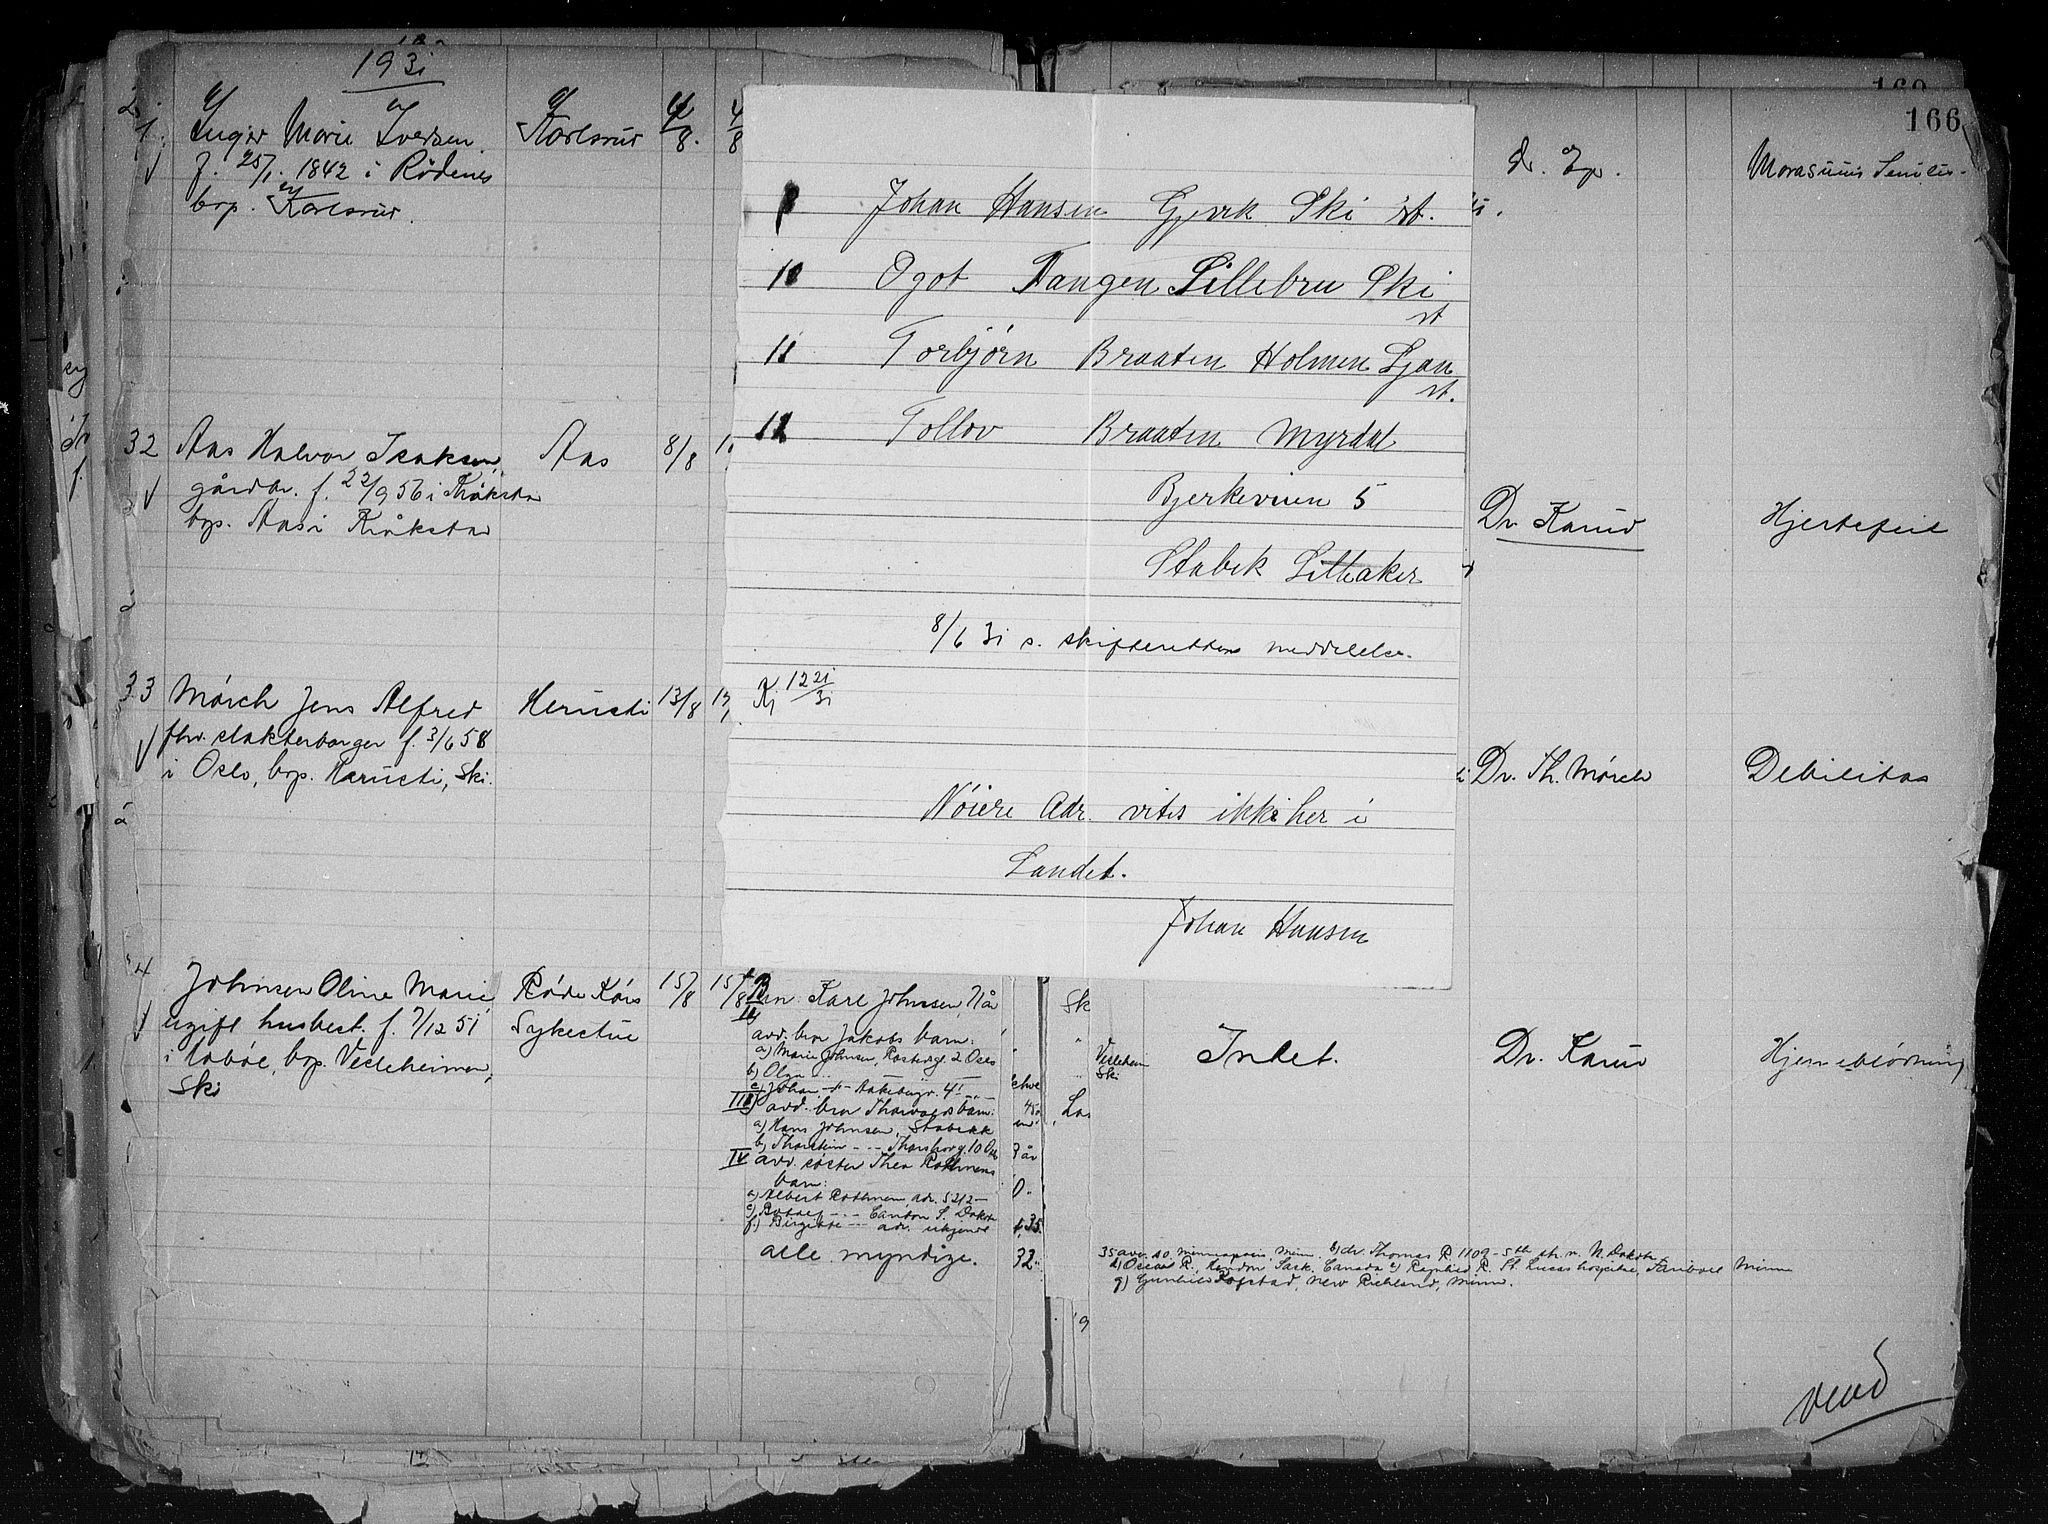 1931
166
Inger Marie Iversen
f. 25/1. 1842 i Rødenes
bop. Karlsrud.
Karlsrud
4/8.
4/8
Johan Hansen Gjevik Ski st.
Ogot Tangen Lillebru Ski
st
11 Torbjørn Braaten Holmen Ljan
st.
12 Tollov Braaten Myrdal
Bjerkeveien 5
Stabek Lilleaker
8/6 31 s. skifterettens meddelelse.
Kj 1221/31
Nøiere Adr. vites ikke her i
Landet.
Johan Hansen
32 Aas Halvor Isaksen,
gårdbr. f. 22/9 56 i Kråkstad
bop. Aas i Kråkstad
Aas
8/8
Dr. Karud
Hjertefeil
33 Mørch Jens Alfred
fhv. slakterborger f. 3/6 58
i Oslo, bop. Herusti, Ski.
Herusti
13/8
Dr. Th. Mørch
Debilitas
Johnsen Oline Marie,
ugift husbest. f. 7/12 51
i Hobøl, bop. Vesleheimen,
Ski
Røde Kors
Sykestue
15/8
15/8
Karl Johnsen, 71 år
avd. bror Jakobs barn:
a) Marie Johnsen, 2 Oslo
b) Olga
c) Johan
III avd. bror Thorvalds barn:
a) Hans Johnsen, Stabekk
b) Thorstein --- Thorsborg. 10 Oslo
IV avd. søster Thea Rothmens
barn:
a) Albert Rothmen adr. 5212-
--- Canton S. Dakota
f.) Birgitte --- adr. ukjendt
alle myndige.
Vesleheim
Ski
Intet.
Dr. Karud
Hjerneblødning
35 ave. so. Minneapolis, Minn. b) dr. Thomas R. 1109-5th str. n. N. Dakota
d) Oscar R. Sask. Canada e) Ragnhild R. St. Lucas hospital, Faribault Minn
g) Gunhild Rofstad, New Richland, Minn.
vend